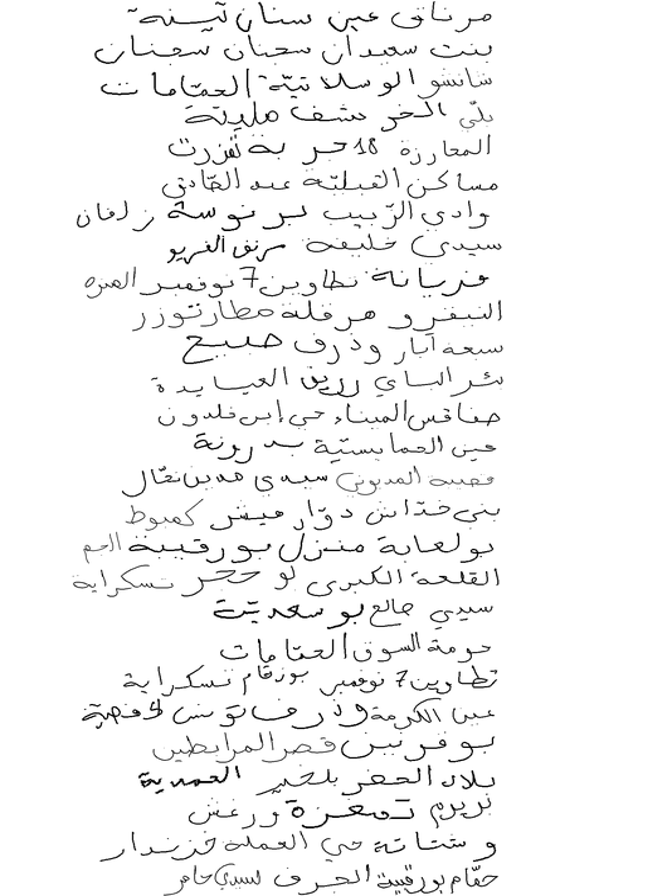 مرناق عين سنان تيبنة
بنت سعيدان سجنان سجنان
شانشو الوسلاتيّة الحمّامات
بلّي الخرشف ملينة
المعارزة 18 جربة تمزرت
مساكن القبليّة عبد الصّادق
وادي الزّبيب برنوسة زلفان
سيدي خليفة مرنق الفريو
فريانة تطاوين 7 نوفمبر
النيفرو هرقلة مطار توزر
سبعة آبار وذرف صبيح
بئر الباي رزيق العيايدة
صفاقس الميناء حي إبن خلدون
عين الحمايسيّة بدرونة
قصيبة المديوني سيدي مدين نقّال
بني خدّاش دوّار ميشر كعبوط
بولعابة منزل بورقيبة الجم
القلعة الكبرى بو حجر تسكراية
سيدي صالح بوسعديّة
حومة السوق الحمّامات
تطاوين 7 نوفمبر بوزقام تسكراية
عين الكرمة وذرف تونس قفصة
بوفريس قصر المرابطين
بلاد الحضر بلخير
تمغزة ورغش
وشتاتة حي العملة خزندار
حمّام بورقيبة الجرف سيدي عامر